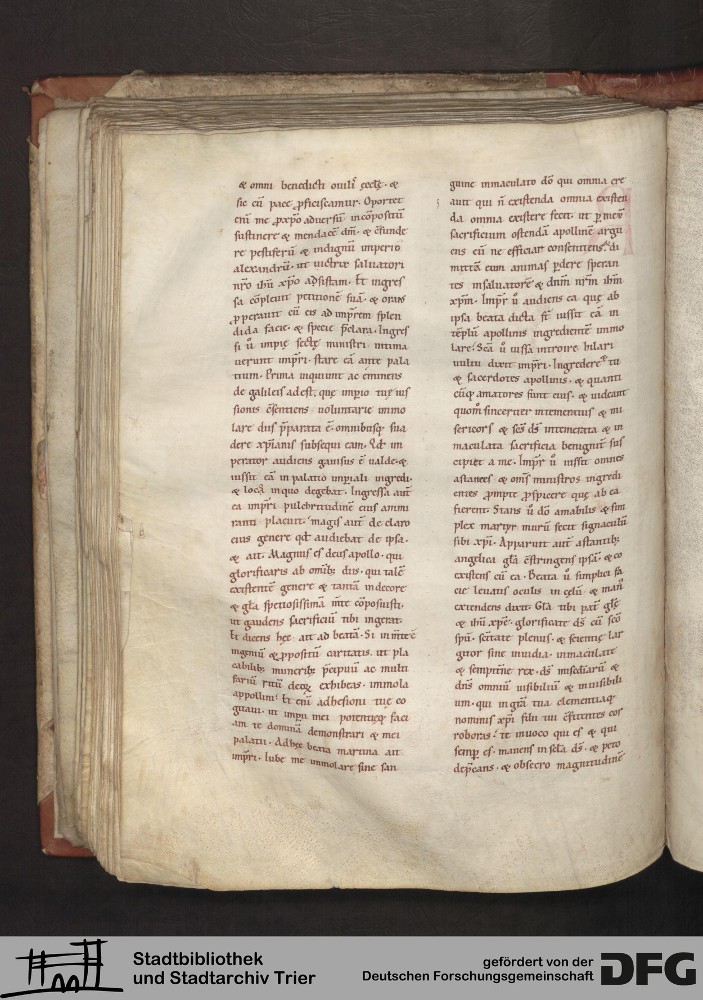 & omni benedicti ouili ęcclę · &
sic cū pace ꝓficiscamur · Oportet
enī me ꝓ xp̄o aduersū incōpositū
sustinere & mendacē dm̄ · & cōfunde
re pestiferū & indignū imperio
alexandrū · ut uictrix saluatori
nr̄o ihū xp̄o adsistam · Et ingres
sa cōpleuit petitionē suā · & orans
ꝓperauit cū eis ad imp̄rem splen
dida facie · & specie p̄clara · Ingres
si ū impię sectę ministri intima
uerunt imp̄ri · stare eā ante pala
tium · Prima inquiunt ac eminens
de galileis adest · quę imperio tuę uis
sionis cōsentiens uoluntarie immo
lare diis p̄parata ē · omnibusq; sua
dere xp̄ianis subsequi eam · Qd̄ im
perator audiens gauisus ē ualde · &
iussit eā in palatio imp̄iali ingredi ·
& loco in quo degebat · Ingressa aut̄
ea imp̄ri pulchritudinē eius ammi
ranti placuit · magis aut̄ de claro
eius genere qd̄ audiebat de ipsa ·
& ait · Magnus es deus apollo · qui
glorificaris ab omib; diis · qui talē
existentē genere & tantā in decore
& gl̄a speciosissimā mīte cōposuisti ·
ut gaudens sacrificiū tibi ingerat ·
Et dicens hęc ait ad beatā · Si in mente
ingeniū & ꝓpositū caritatis · ut pla
cabilib; munerib; p̄cipuū ac multi
fariū ritū deoꝝ exhibeas · immola
appollini · Et enī adhesioni tuę co
guam · ut imp̄ii mei potentięq; faci
am te dominā demonstrari & mei
palatii · Adhęc beata martina ait
imp̄ri · Iube me immolare sine san
guine immaculato dō qui omnia cre
auit qui n̄ existenda omnia existen
da omnia existere fecit · ut p̄ meū
sacrificium ostendā apollinē argu
ens eū ne efficiar consentiens · di
mittā eum animas ꝑdere speran
tes in saluatorē & dnm̄ nrm̄ ihm̄
xp̄m · Imp̄r ū audiens ea quę ab
ipsa beata dicta st̄ iussit eā in
tēplū apollinis ingredientē immo
lare · Scā ū iussa introire hilari
uultu dixit imp̄ri · Ingredere tu
& sacerdotes apollinis · & quanti
cūq; amatores sunt eius · & uideant
quom̄ sinceriter intementius & mi
sericors & scs̄ ds̄ intemerata & in
maculata sacrificia benignit̄ sus
cipiet a me · Imp̄r ū iussit omnes
astantes & oms̄ ministros ingredi
entes prompte ꝓspicere quę ab ea
fierent · Stans ū dō amabilis & sim
plex martyr murū fecit signaculū
sibi xp̄i · Apparuit aut̄ astantib;
angelica gl̄a cōstringens ipsā · & co
existens cū ea · Beata ū simplici fa
cie leuatis oculis in cęlū · & man̄
extendens dixit · Gl̄a tibi pat̄ glę̄
& ihū xp̄e · glorificate ds̄ cū scō
spū · scītate plenus · & scientię lar
gitor sine inuidia · immaculate
& sempit̄ne rex · ds̄ misc̄diarū &
dns̄ omniū uisibiliū & inuisibili
um · qui in gr̄a tua clementiaq;
nominis xp̄i filii tui cōfitentes cor
roboras · te inuoco qui es & qui
semp̄ es · manens in sc̄la ds̄ · & peto
dep̄cans · & obsecro magnitudinē
Stadtbibliothek
und Stadtarchiv Trier
gefördert von der
Deutschen Forschungsgemeinschaft
DFG